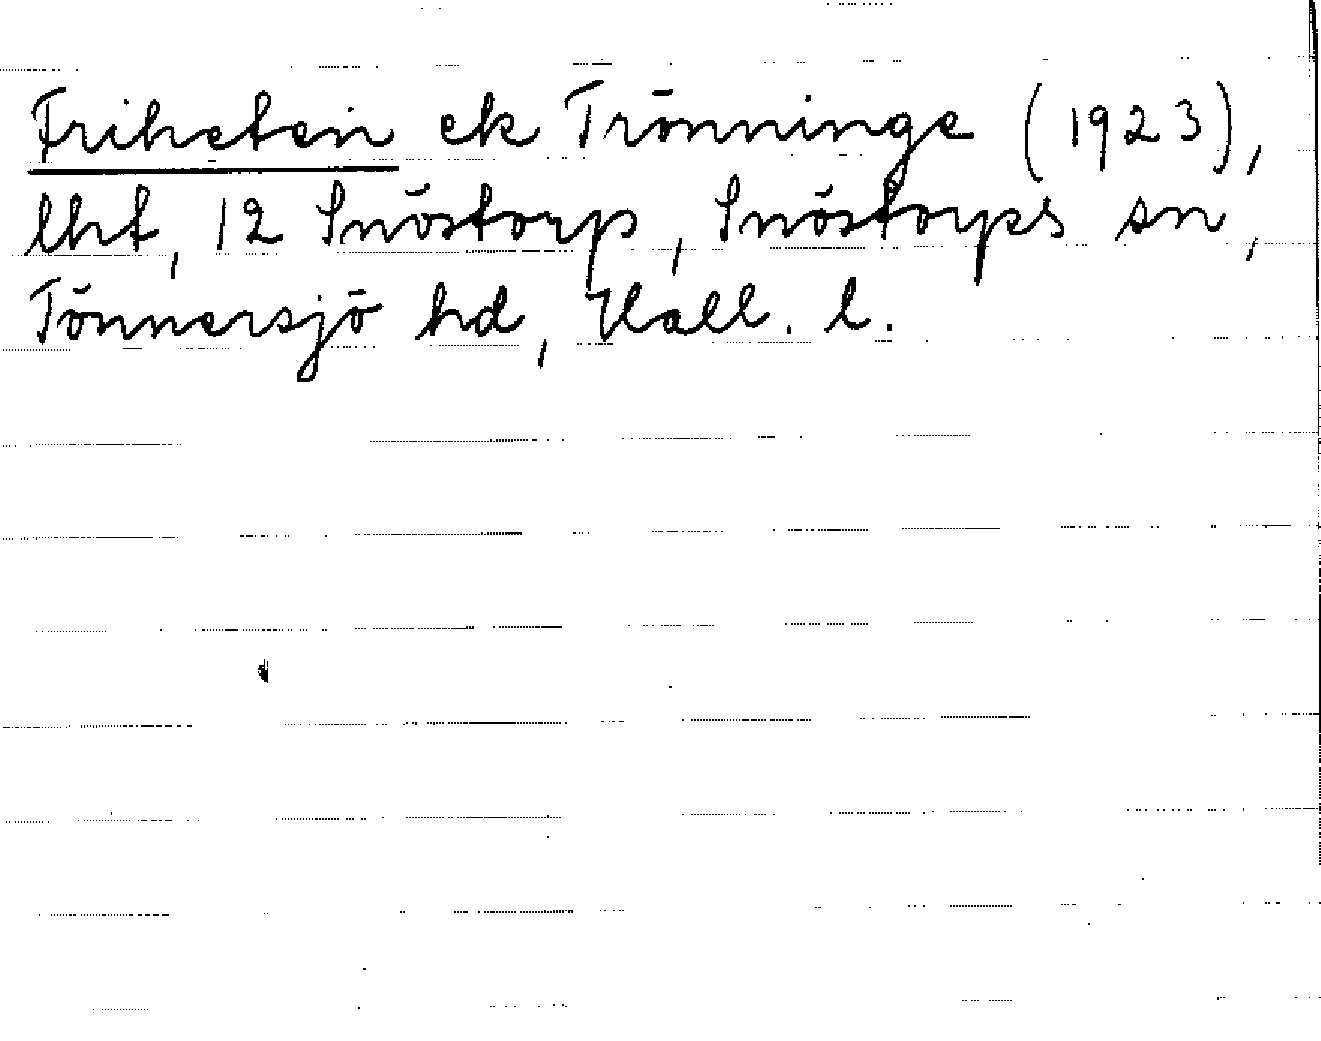 Friheten ek Trönninge (1923),
lht, 12 Snöstorp, Snöstorps sn,
Tönnersjö hd, Hall. l.